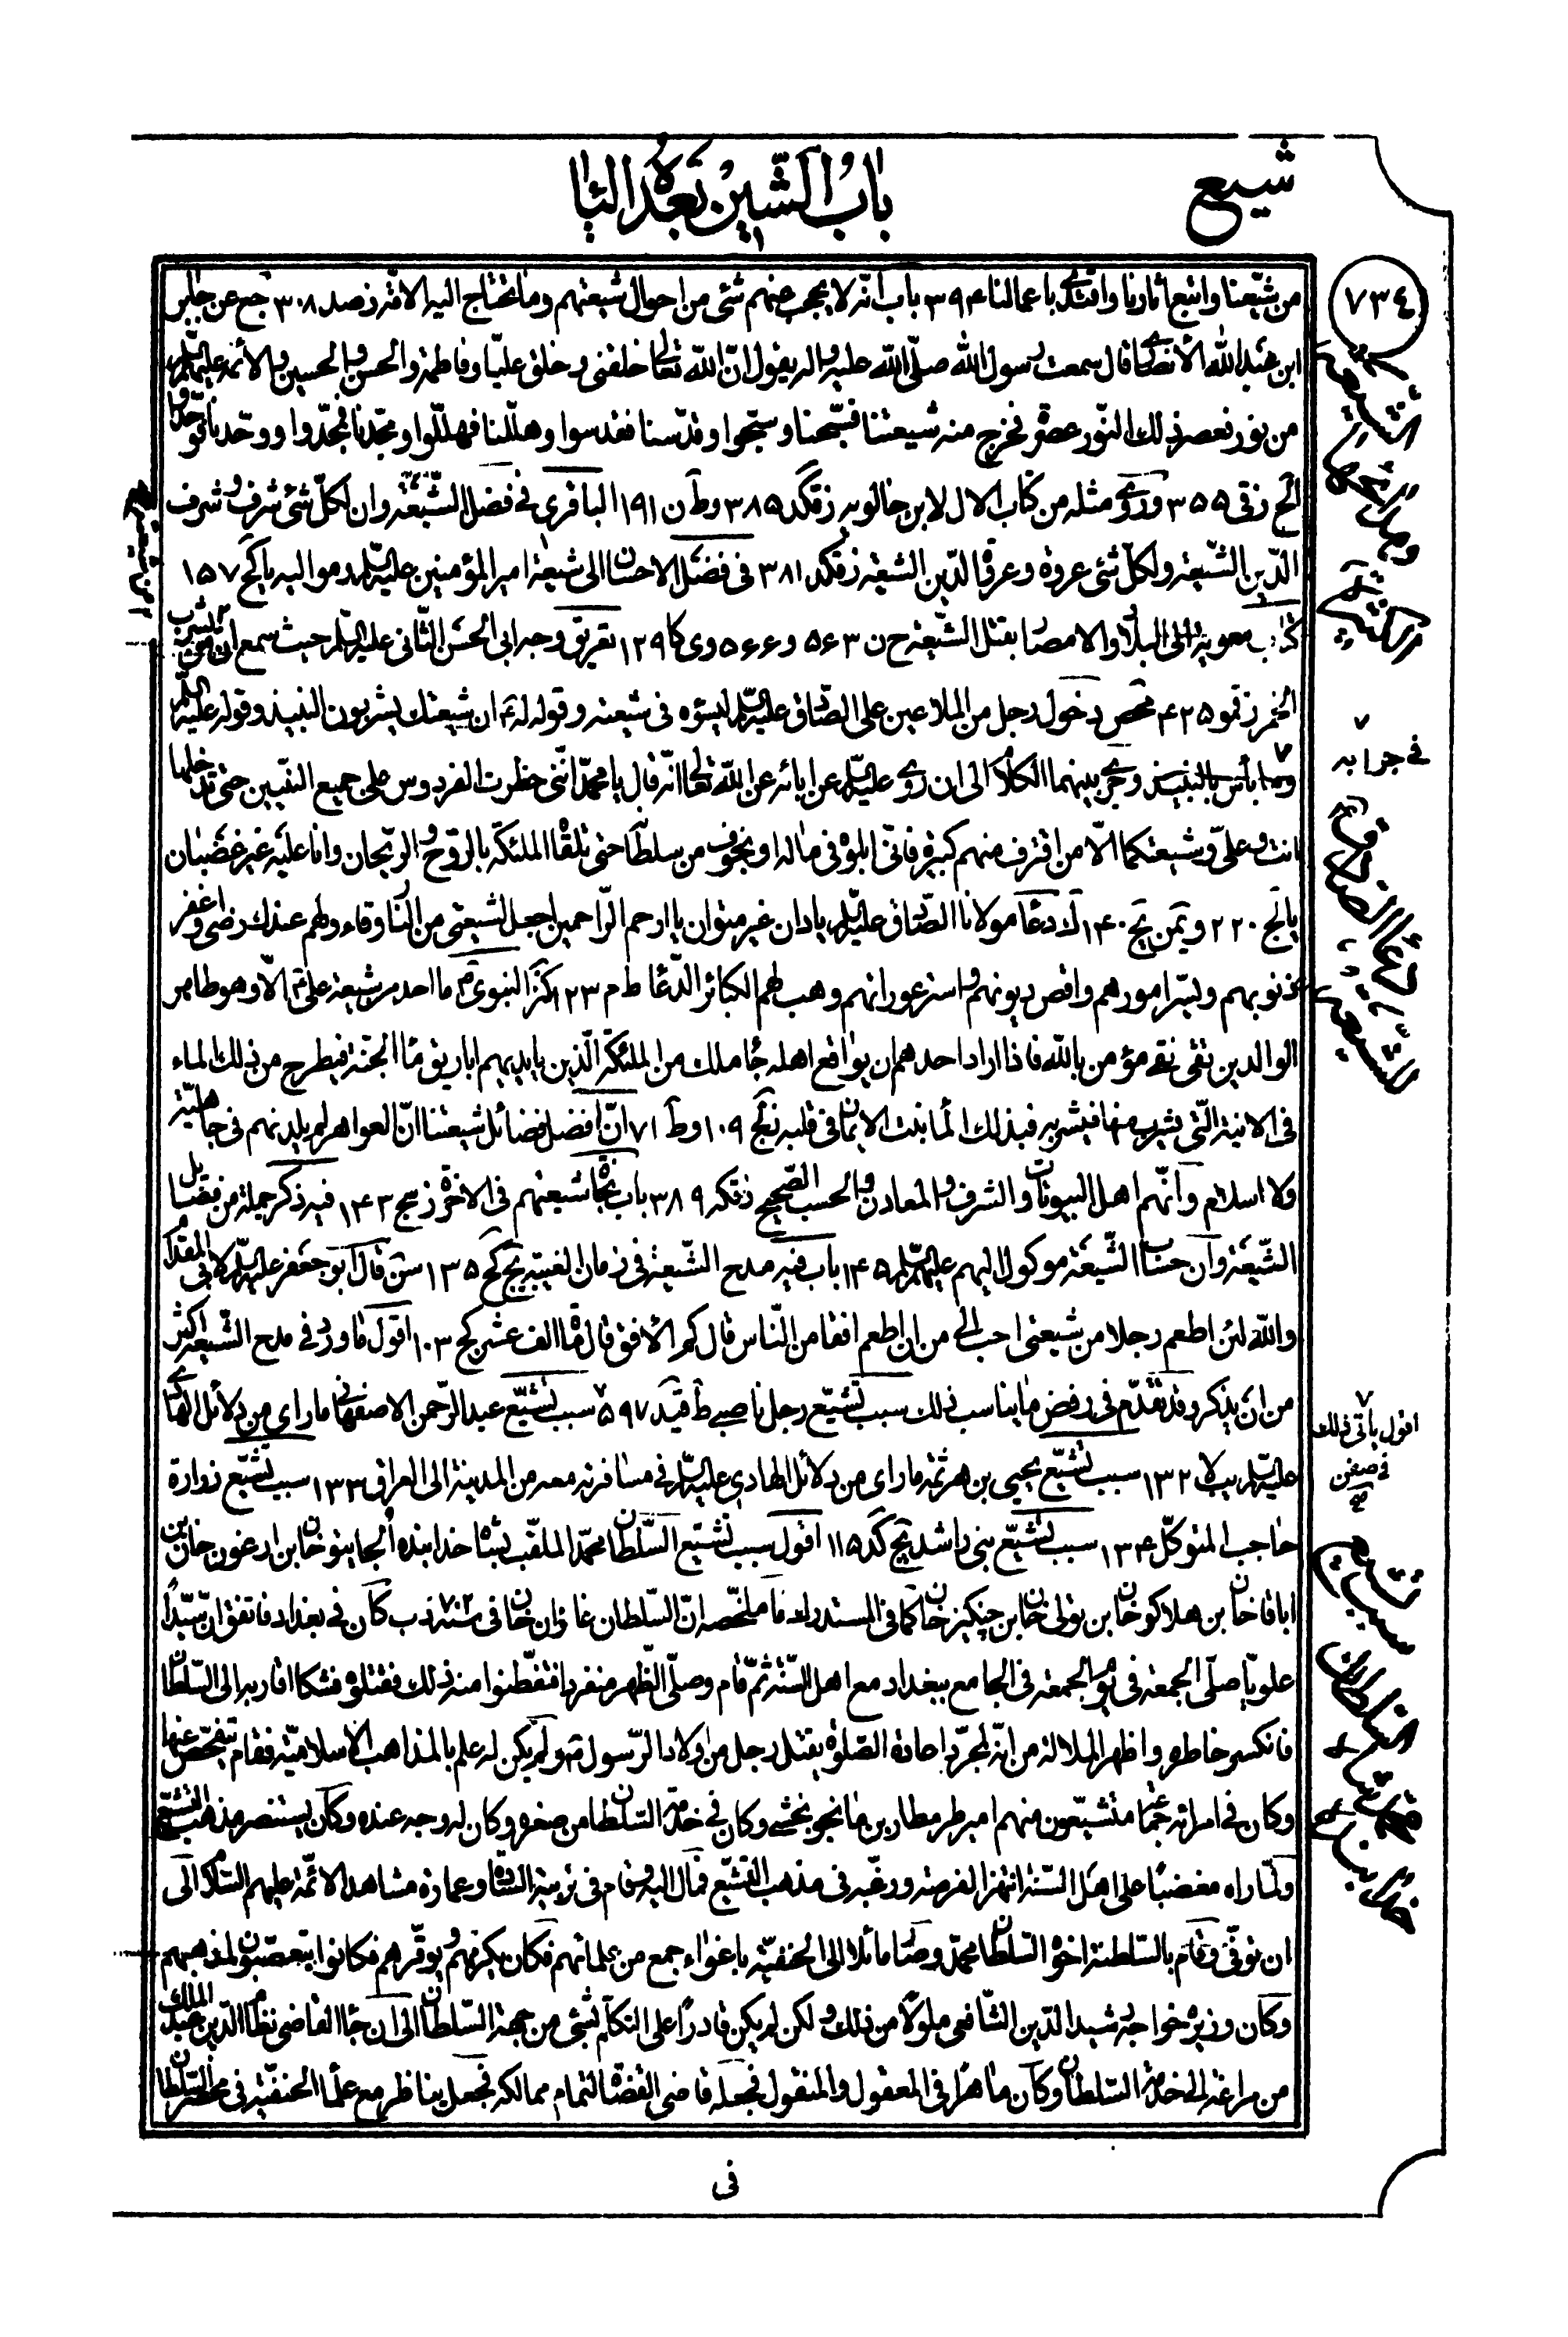 شيع
باب الشين بعده الياء
٧٣٤
من شيّعنا واتبع اثارنا واقتدى باعمالنا ٣٩٤ باب انّه لا يحجب عنهم شئ من احوال شيعتهم وما تحتاج اليه الامّة زصد ٣٠٨ جع عن جابر
ابن عبد الله الأنصارى قال سمعت رسول الله صلّى الله عليه واله يقول انّ الله تعالى خلقنى وخلق عليّا وفاطمة والحسن والحسين والأئمة عليهم السّلم
من نور فعصر ذلك النّور عصرة فخرج منه شيعتنا فسبّحنا وسبّحوا وقدّسنا فقدسوا وهلّلنا فهلّلوا ومجّدنا فمجّدوا ووحّدنا فوحّدوا
الخ زقى ٣٥٥ وروى مثله من كتاب الال لابن خالويه زقكد ٣٨٥ وط ن ١٩١ الباقرى في فضل الشّيعة وان لكلّ شئ شرف وشرف
الدّين الشّيعة ولكلّ شئ عروة وعروة الدّين الشيعة زقكد ٣٨١ فى فضل الاحسان الى شيعة امير المؤمنين عليه السّلم ومواليه يا كج ١٥٧
كتاب معوية الى البلاد والامصار بقتل الشّيعة ح ن ٥٦٣ و ٥٦٦ وى كا ١٢٩ تعريق وجه ابى الحسن الثّانى عليه السّلم حيث سمع ان
الخمر زقمو ٤٢٥ محص دخول رجل من الملاعين على الصّادق عليه السّلم ليسؤه فى شيعته وقوله له ان شيعتك يشربون النبيذ وقوله عليه السّلم
وما بأس بالنبيذ وجرى بينهما الكلام الى ان روى عليه السّلم عن ابائه عن الله تعالى انّه قال يا محمّد انّنى حظرت الفردوس على جميع النّبيين حتى تدخلها
انت وعلىّ وشيعتكما الّا من اقترف منهم كبيرة فانّى ابلوه فى ماله او بخوف من سلطانه حتى تلقاه الملئكة بالرّوح والرّيحان وانا عليه غير غضبان
يا نج ٢٢٠ ويمن يج ١٤٠ دعاء مولانا الصّادق عليه السّلم يا دان غير متوان يا ارحم الرّاحمين اجعل لشيعتى من النار وقاء ولهم عندك رضى واغفر
ذنوبهم ويسّر امورهم واقض ديونهم واستر عوراتهم وهب لهم الكبائر الدّعاء ط م ١٢٣ كنز النبوى ما احد من شيعة علىّ الّا وهو طاهر
الوالدين تقى نقى مؤمن بالله فاذا اراد احدهم ان يواقع اهله جاء ملك من الملئكة الّذين بايديهم اباريق من ماء الجنّة فيطرح من ذلك الماء
فى الانية الّتى يشرب منها فيشربه فبذلك الماء ينبت الايمان فى قلبه زيج ١٠٩ وط ٧١ انّ افضل فضائل شيعتنا انّ العواهر لم يلدنهم فى جاهليّة
ولا اسلام وانّهم اهل البيوتات والشرف والمعادن والحسب الصّحيح زقكه ٣٨٩ باب نجاة شيعتهم فى الاخرة زيج ١٤٣ فيه ذكر جملة من فضايل
الشّيعة وان حساب الشّيعة موكول اليهم عليهم السّلم ١٤٥ باب فيه مدح الشّيعة فى زمان الغيبة يج كج ١٣٥ سن قال ابو جعفر عليه السّلم لابى المقدام
والله لئن اطعم رجلا من شيعتى احب الىّ من ان اطعم افقا من النّاس قال كم الأفق قال مائة الف عشر كج ١٠٣ اقول ما ورد في مدح الشّيعة اكثر
من ان يذكر وقد تقدّم فى رفض ما يناسب ذلك سبب تشيّع رجل ناصبى ط قيد ٥٩٧ سبب تشيّع عبد الرّحمن الاصفهانى ما راى من دلائل الهادى
عليه السّلم يب لا ١٣٢ سبب تشيّع يحيى بن هرثمة ما راى من دلائل الهادى عليه السّلم فى مسافرته معه من المدينة الى العراق ١٣٣ سبب تشيّع زوارة
حاجب المتوكّل ١٣٤ سبب تشيّع بنى راشد يج كد ١١٥ اقول سبب تشيّع السّلطان محمّد الملقّب بشاه خدابنده الجايتو خان ابن ارغون خان بن
اباقا خان بن هلاكو خان ابن تولى خان ابن چنگيز خان كما فى المستدرك ما ملخّصه انّ السّلطان غازان خان فى سنة ٧٠٢ ذب كان في بغداد فاتفق انّ سيّدا
علويّا صلّى الجمعة فى يوم الجمعة فى الجامع ببغداد مع اهل السّنّة ثمّ قام وصلّى الظّهر منفردا فتفطّنوا منه ذلك فقتلوه فشكا اقاربه الى السّلطان
فانكسر خاطره واظهر الملالة من انّه لمجرّد اعادة الصّلوة يقتل رجل من اولاد الرّسول ولم يكن له علم بالمذاهب الاسلاميّة فقام يتفحّص عنها
وكان فى امرائه جماعة متشيّعون منهم امير طرمطار بن مانجو بخشى وكان في خدمة السّلطان من صغره وكان له وجه عنده وكان يستنصر مذهب التشيّع
ولمّا راه مغضبا على اهل السّنة انتهز الفرصة ورغّبه فى مذهب التشيّع فمال اليه وقام فى تربية السّادة وعمارة مشاهد الائمّة عليهم السّلام الى
ان توفّى وقام بالسّلطنة اخوه السّلطان محمّد وصار مائلا الى الحنفيّة باغواء جمع من علمائهم فكان يكرمهم ويوقّرهم فكانوا يتعصّبون لمذهبهم
وكان وزيره خواجه رشيد الدّين الشّافعى ملولا من ذلك ولكن لم يكن قادرا على التكلّم بشئ من جهة السّلطان الى ان جاء القاضى نظام الدّين عبد الملك
من مراغه الى خدمة السّلطان وكان ماهرا فى المعقول والمنقول فجعله قاضى القضاة لتمام ممالكه فجعل يناظر مع علماء الحنفيّة فى محضر السّلطان
فى
في جرابه
دعاء الصادق
للشيعة
اقول ياتى ذلك
فى صفن
سبب تشيع
السلطان
محمد شاه
خدابنده